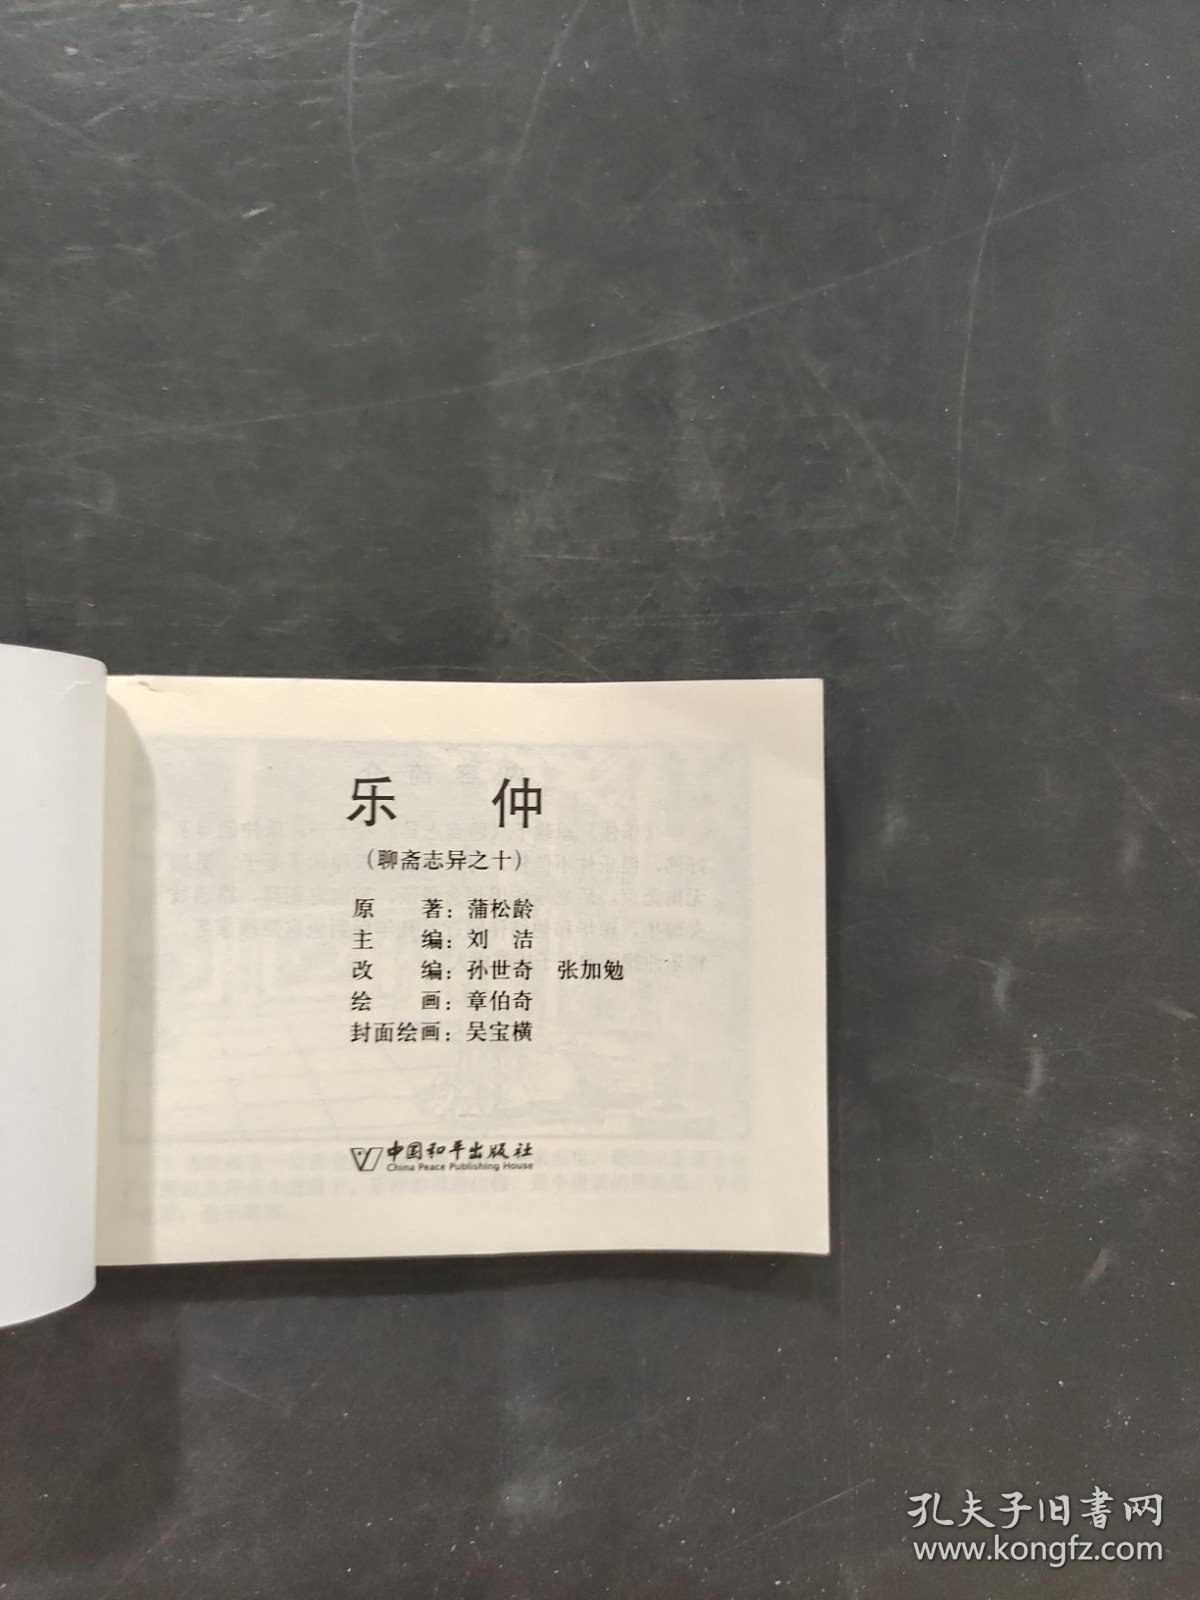 乐 仲
(聊斋志异之十)
原 著：蒲松龄
主 编：刘 洁
改 编：孙世奇 张加勉
绘 画：章伯奇
封面绘画：吴宝横
中国和平出版社
China Peace Publishing House
孔夫子旧书网
www.kongfz.com